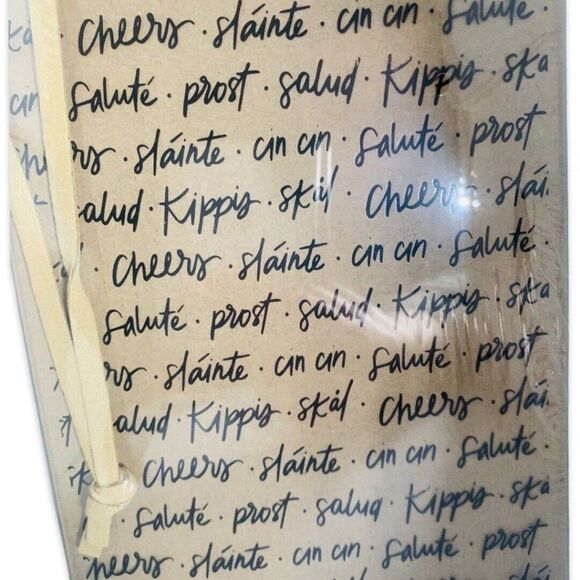 Cheers · sláinte · cin cin · Saluté ·
Saluté · prost · salud · Kippis · ska
rs · sláinte · cin cin · Saluté · prost
alud · Kippis · skål · Cheers · slái
· Cheers · sláinte · cin cin · Saluté ·
Saluté · prost · salud · Kippis · ska
rs · sláinte · cin cin · Saluté · prost
alud · Kippis · skål · Cheers · slái
sk · Cheers · sláinte · cin cin · Saluté ·
· Saluté · prost · salud · Kippis · skå
heers · sláinte · cin cin · Saluté · prost